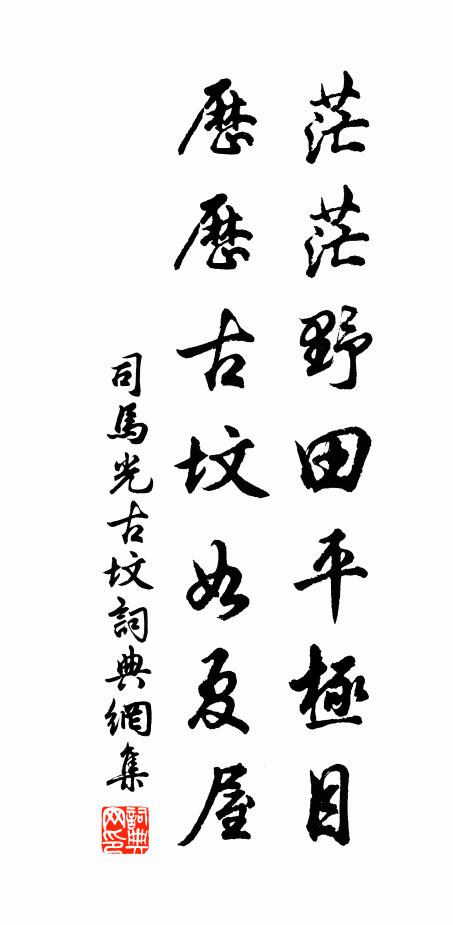 茫茫野田平極目
歷歷古坟如夏屋
司馬光古坟詞典網集
詞典网印